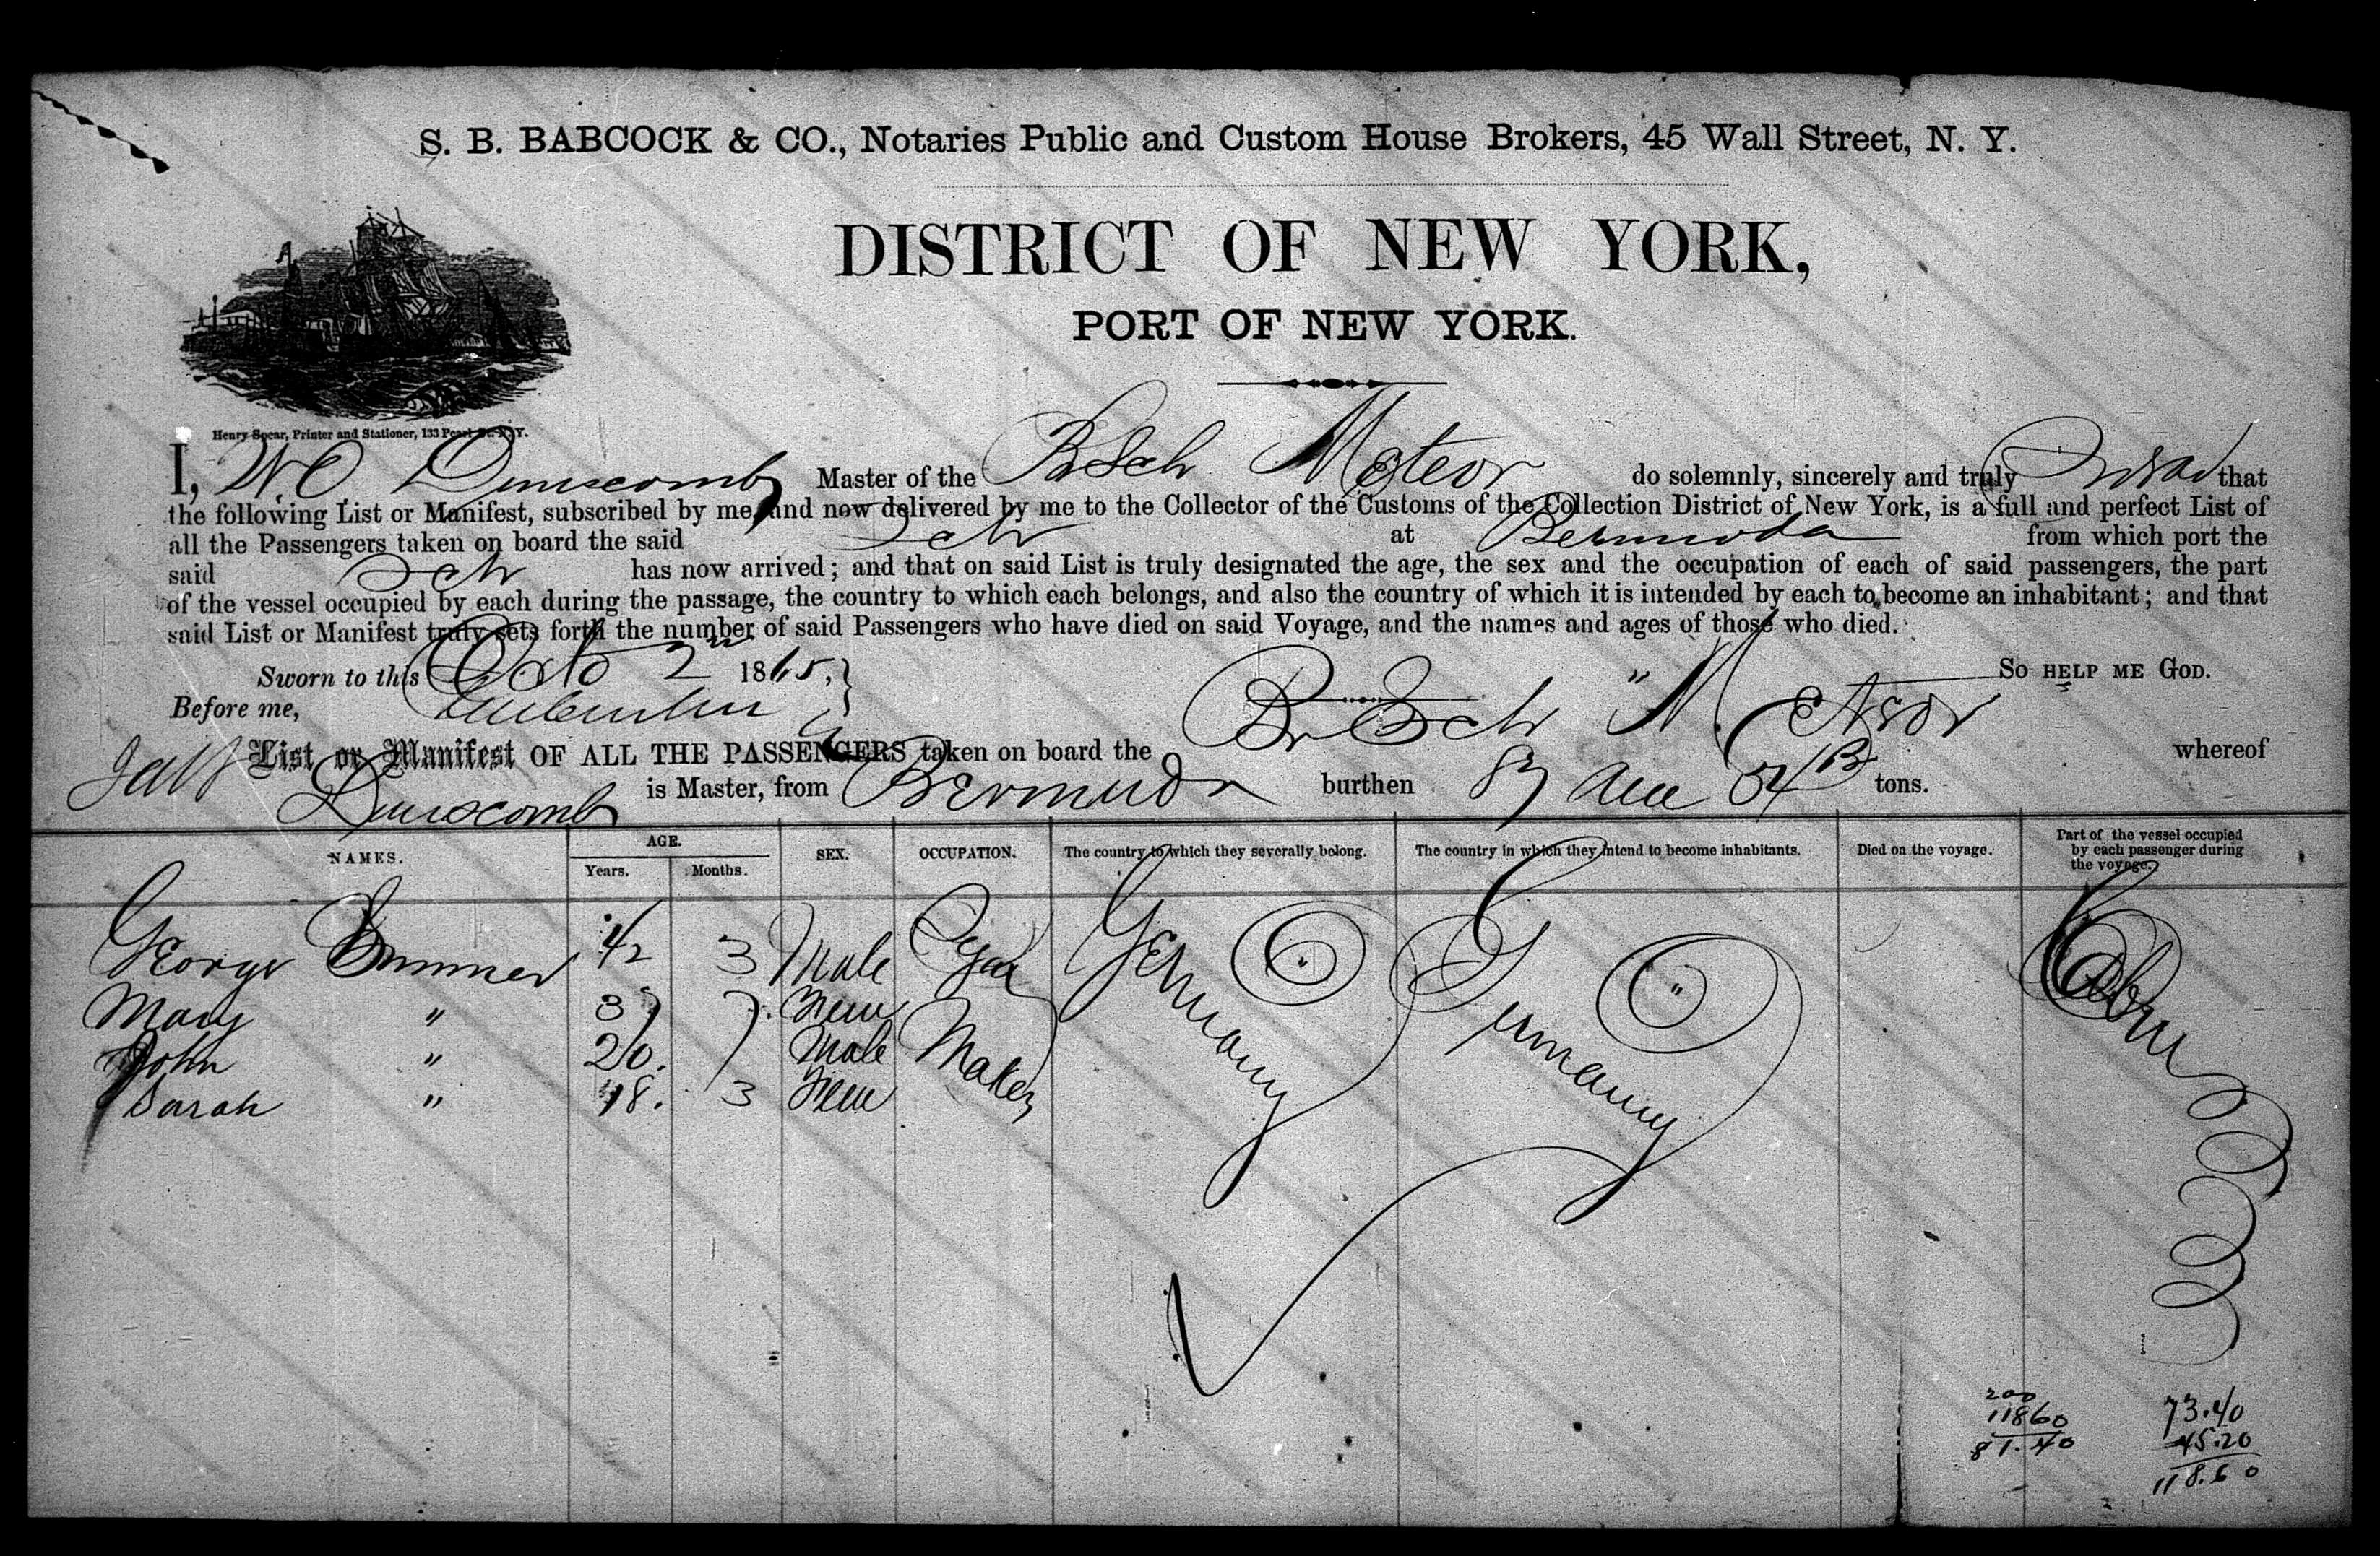 S. B. BABCOCK & CO., Notaries Public and Custom House Brokers, 45 Wall Street, N. Y.
DISTRICT OF NEW YORK,
PORT OF NEW YORK.
Henry Spear, Printer and Stationer, 133 Pearl St. N. Y.
I, W. O. Dunscomb Master of the B Sch Meteor do solemnly, sincerely and truly Swear that
the following List or Manifest, subscribed by me, and now delivered by me to the Collector of the Customs of the Collection District of New York, is a full and perfect List of
all the Passengers taken on board the said Sch at Bermuda from which port the
said Sch has now arrived; and that on said List is truly designated the age, the sex and the occupation of each of said passengers, the part
of the vessel occupied by each during the passage, the country to which each belongs, and also the country of which it is intended by each to become an inhabitant; and that
said List or Manifest truly sets forth the number of said Passengers who have died on said Voyage, and the names and ages of those who died.
Sworn to this Octo 2nd 1865, SO HELP ME GOD.
Before me, Br Sch " Meteor
List or Manifest OF ALL THE PASSENGERS taken on board the whereof
Dunscomb is Master, from Bermuda burthen tons.
NAMES. AGE. SEX. OCCUPATION. The country to which they severally belong. The country in which they intend to become inhabitants. Died on the voyage. Part of the vessel occupied by each passenger during the voyage.
Years. Months.
George 42 3 Male Cigar Germany Germany Cabin
Mary " 37 7. Fem
John " 20. 7 Male Maker
Sarah " 18. 3 Fem
200
11860
81.40
73.40
45.20
118.60